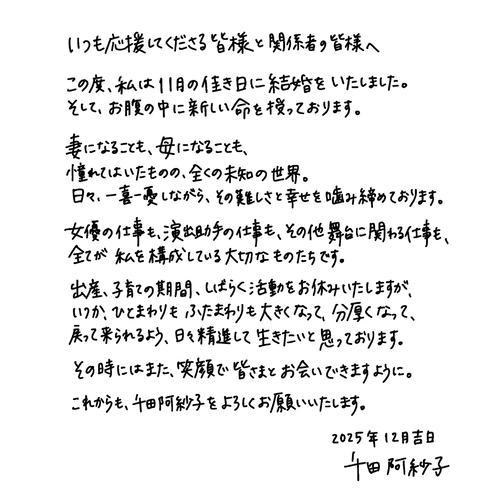 いつも応援してくださる皆様と関係者の皆様へ
この度、私は11月の佳き日に結婚をいたしました。
そして、お腹の中に新しい命を授っております。
妻になることも、母になることも、
憧れてはいたものの、全くの未知の世界。
日々、一喜一憂しながら、その難しさと幸せを噛み締めております。
女優の仕事も、演出助手の仕事も、その他舞台に関わる仕事も、
全てが私を構成している大切なものたちです。
出産、子育ての期間、しばらく活動をお休みいたしますが、
いつか、ひとまわりもふたまわりも大きくなって、分厚くなって、
戻って来られるよう、日々精進して生きたいと思っております。
その時にはまた、笑顔で皆さまとお会いできますように。
これからも、千田阿紗子をよろしくお願いいたします。
2025年12月吉日
千田阿紗子